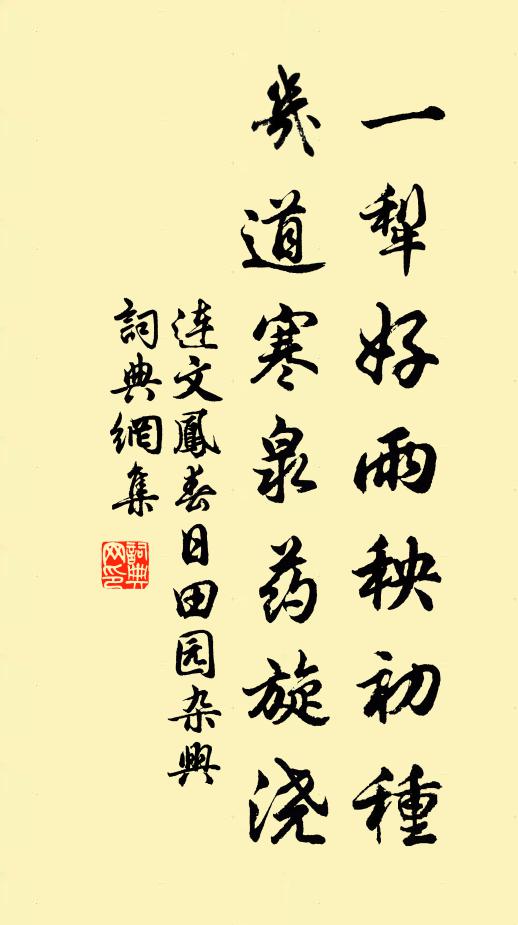 一犁好雨秧初種
幾道寒泉药旋浇
连文鳳春日田园杂興
詞典網集
詞典网印